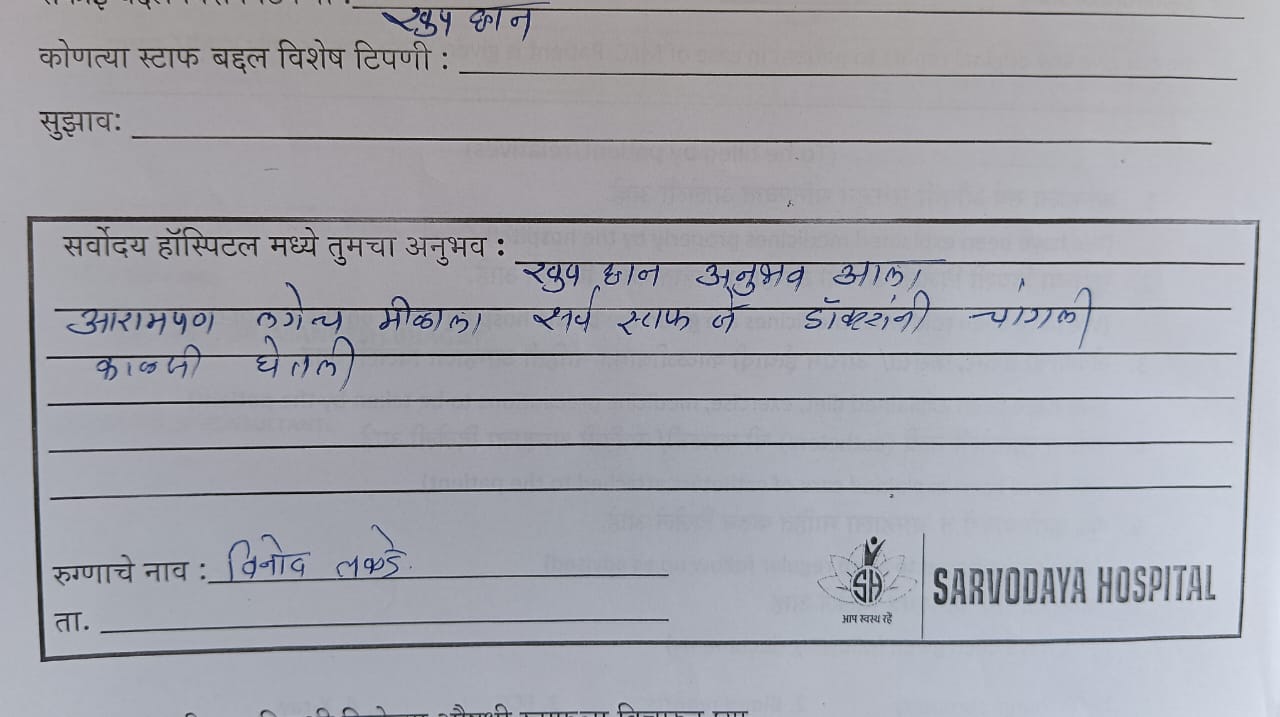 खुप छान
कोणत्या स्टाफ बद्दल विशेष टिपणी :
सुझाव:
सर्वोदय हॉस्पिटल मध्ये तुमचा अनुभव : खुप छान अनुभव आला
आरामपण लगेच मीळाला सर्व स्टाफ ने डॉक्टरांनी चांगली
काळजी घेतली
रुग्णाचे नाव : विनोद लकडे.
ता.
SH
आप स्वस्थ रहें
SARVODAYA HOSPITAL